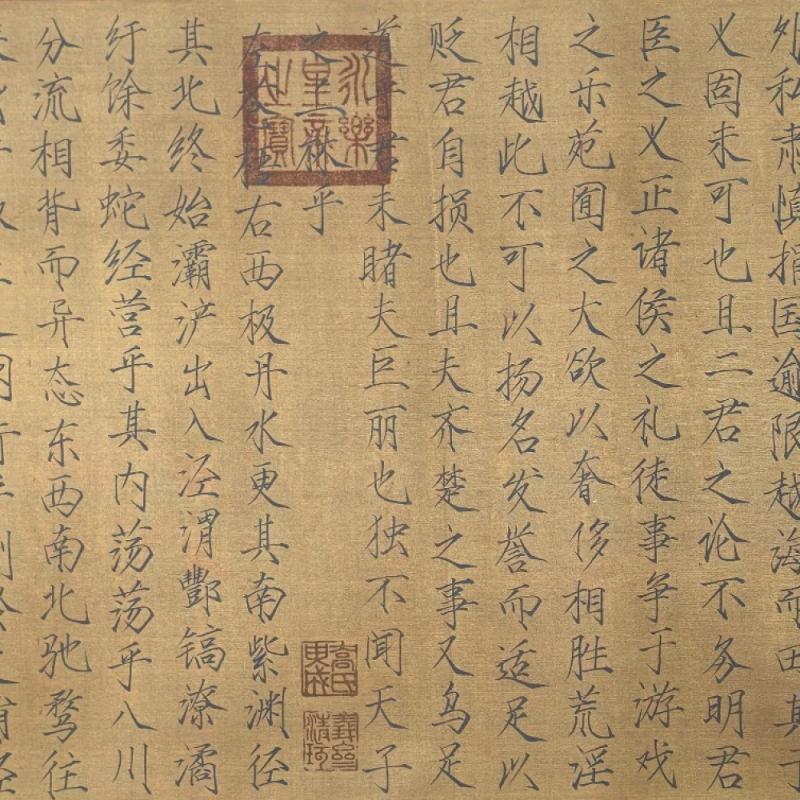 外私肃慎捐国逾限越海而田其于
义固未可也且二君之论不务明君
臣之义正诸侯之礼徒事争于游戏
之乐苑囿之大欲以奢侈相胜荒淫
相越此不可以扬名发誉而适足以
贬君自损也且夫齐楚之事又乌足
道乎君未睹夫巨丽也独不闻天子
之上林乎
左苍梧右西极丹水更其南紫渊径
其北终始灞浐出入泾渭酆镐潦潏
纡馀委蛇经营乎其内荡荡乎八川
分流相背而异态东西南北驰骛往
永樂
皇帝
之寶